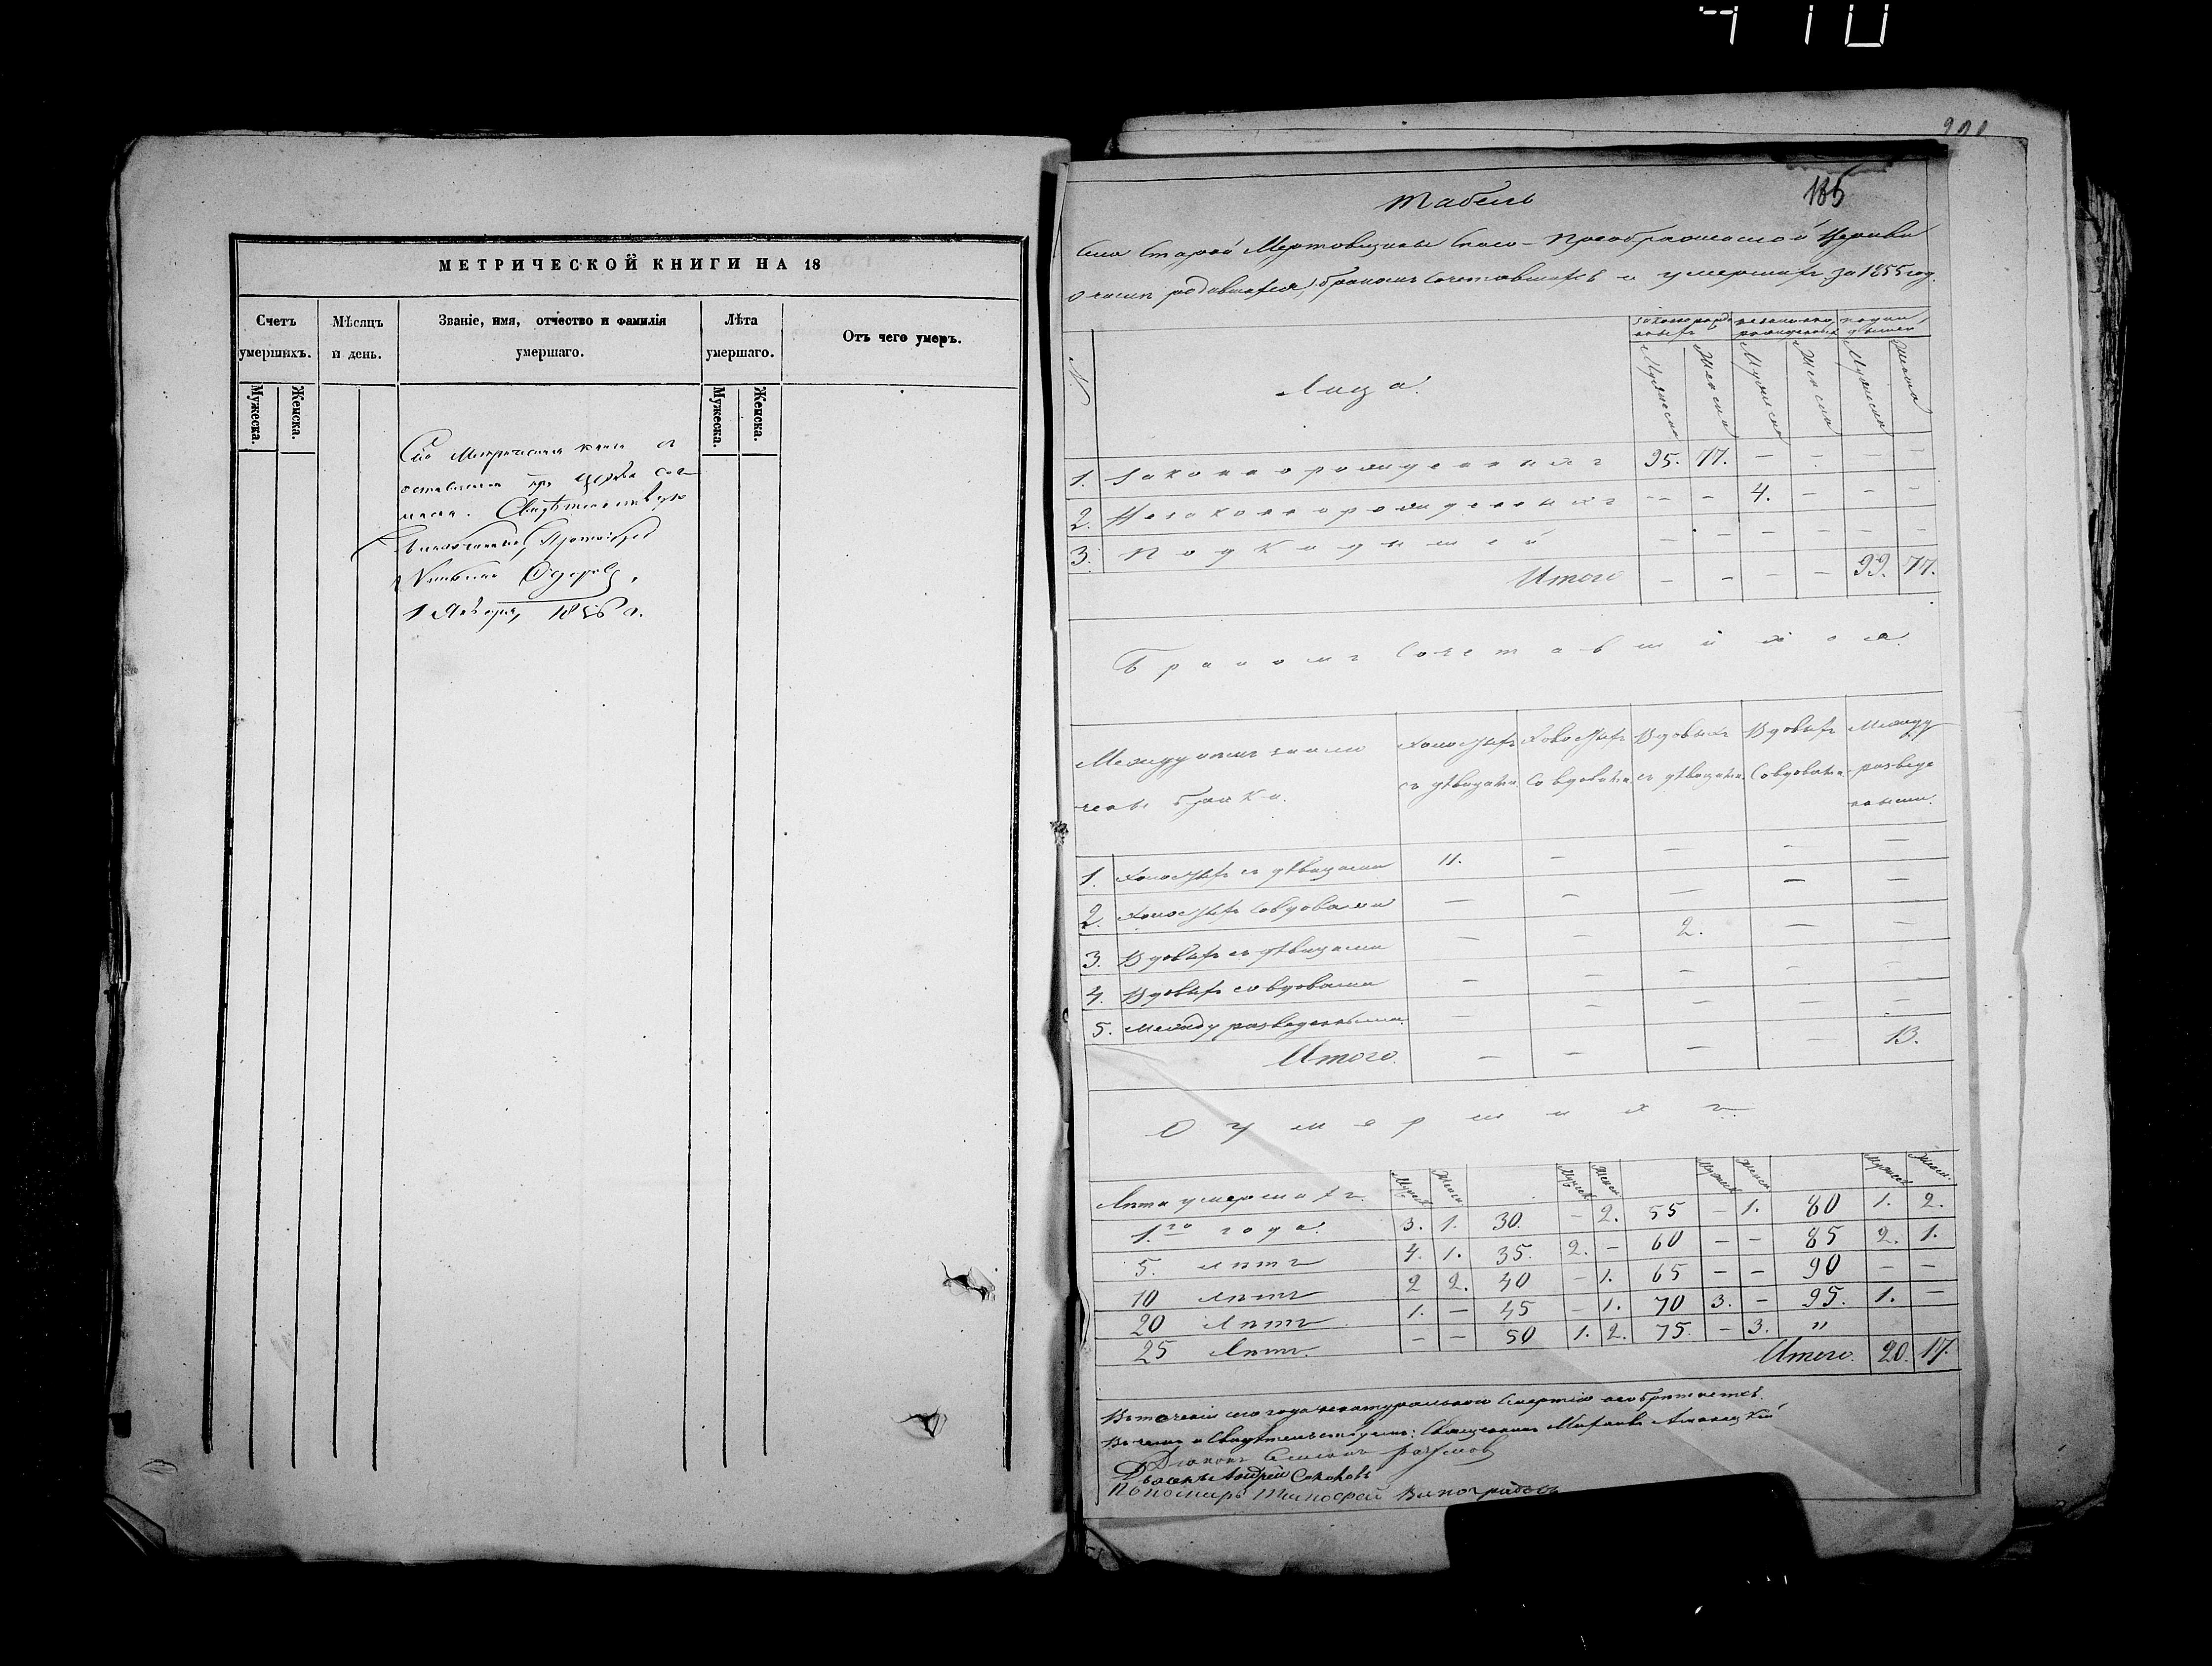 МЕТРИЧЕСКОЙ КНИГИ НА 18
Счетъ умершихъ.
Мужеска.
Женска.
Мѣсяцъ и день.
Званіе, имя, отчество и фамилія умершаго.
Лѣта умершаго.
Мужеска.
Женска.
Отъ чего умеръ.
Сію Метрическая книга
при Церкви
Свидѣтельствую
Благочинный, Протоіерей
1 Января, 1856 г.
185
Табель
Села Старой Мертовщины Спасо-Преображенской Церкви
о числе родившихся, бракомъ сочетавшихся и умершихъ за 1855 год.
№
Лица.
Мужеска Женска Мужеска Женска Мужеска Женска
1. Законнорожденныхъ 95. 77. — — — —
2. Незаконнорожденныхъ — — 4. — — —
3. Подкидышей — — — — — —
Итого — — — — 99. 77.
Бракомъ Сочетавшихся.
Между кѣмъ заключены браки.
Холостыхъ съ дѣвицами
Холостыхъ со вдовами
Вдовыхъ съ дѣвицами
Вдовыхъ со вдовами
Между разведенными.
1. Холостыхъ съ дѣвицами 11. — — — —
2. Холостыхъ со вдовами — — — — —
3. Вдовыхъ съ дѣвицами — — 2. — —
4. Вдовыхъ со вдовами — — — — —
5. Между разведенными — — — — —
Итого. — — — — 13.
О умершихъ.
Лѣта умершихъ. Мужеск Женск Мужеск Женск Мужеск Женск Мужеск Женск
1го года. 3. 1. 30. — 2. 55 — 1. 80 1. 2.
5. лѣтъ 4. 1. 35. 2. — 60 — — 85 2. 1.
10 лѣтъ 2 2. 40 — 1. 65 — — 90 — —
20 лѣтъ 1. — 45 — 1. 70 3. — 95. 1. —
25 лѣтъ. — — 50 1. 2. 75. — 3. "
Итого. 20. 17.
Въ теченіи сего года ненатуральной смертію
Въ чемъ и Свидѣтельствуемъ: Священникъ
Діаконъ
Дьячекъ Андрей Соколовъ
Пономарь Тимофей Виноградовъ